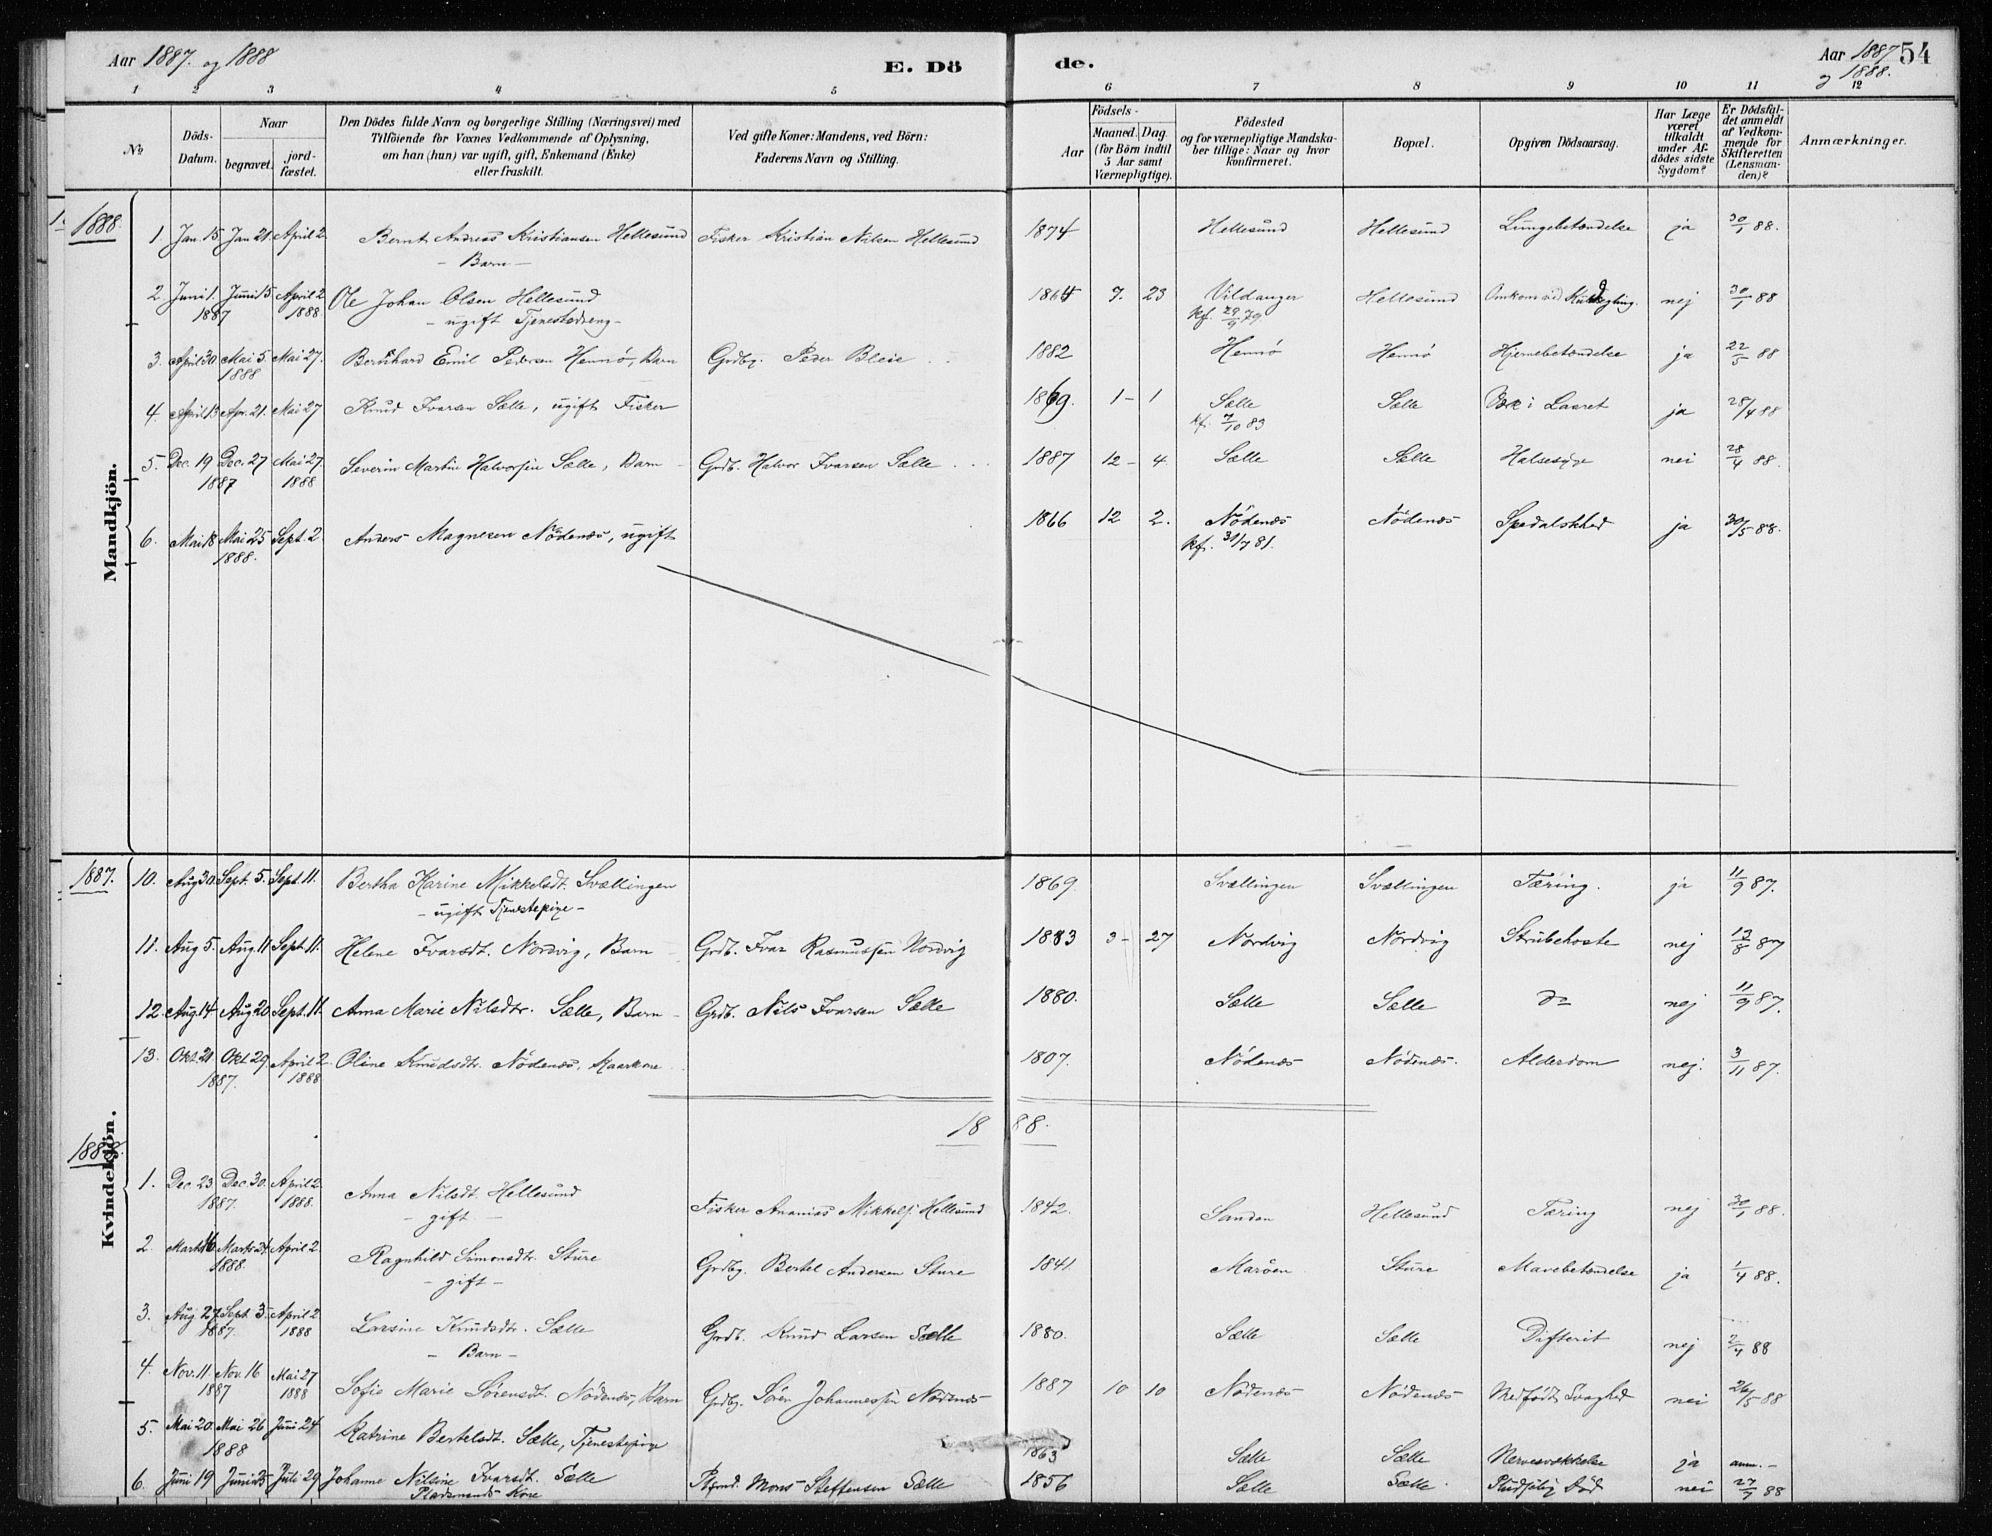 Aar 1887. og 1888
E. Dö de.
Aar 1887 og 1888.
54
1 2 3 4 5 6 7 8 9 10 11 12
No
Döds-Datum.
Naar begravet. jordfæstet.
Den Dödes fulde Navn og borgerlige Stilling (Næringsvei) med Tilföiende for Voxnes Vedkommende af Oplysning, om han (hun) var ugift, gift, Enkemand (Enke) eller fraskilt.
Ved gifte Koner: Mandens, ved Börn: Faderens Navn og Stilling.
Födsels-
Aar Maaned. Dag. (for Börn indtil 5 Aar samt Værnepligtige).
Födested og for værnepligtige Mandskaber tillige: Naar og hvor konfirmeret.
Bopæl.
Opgiven Dödsaarsag.
Har Læge været tilkaldt under Afdödes sidste Sygdom?
Er Dödsfaldet anmeldt af Vedkommende for Skifteretten (Lensmanden)?
Anmærkninger.
Mandkjön.
1888.
1. Jan. 15 Jan 21. April 2 Bernt Andreas Kristiansen Hellesund Fisker Kristian Nilsen Hellesund 1874 Hellesund Hellesund Lungebetændelse ja 30/1 88.
- Barn -
2. Juni 1. Juni 15 April 2 Ole Johan Olsen Hellesund 1864 7. 23 Vildanger Hellesund Omkom ved Kuldsegling. nej 30/1 88
1887 1888 - ugift Tjenestedreng - kf. 29/9 79
3. April 30 Mai 5 Mai 27. Bernhard Emil Pedersen Hennö, Barn Grdbg. Peder Bleie 1882 Hennö Hennö Hjernebetændelse ja 22/5 88
1888
4. April 13 Apr. 21. Mai 27 Knud Ivarsen Sælle, ugift Fisker 1869. 1 - 1 Sælle Sælle i Laaret ja 28/4 88
kf. 7/10 83
5. Dec. 19 Dec. 27 Mai 27. Severin Martin Halvorsen Sælle, Barn Grdb. Halvor Ivarsen Sælle 1887 12 - 4 Sælle Sælle Halsesyge nei 28/4 88.
1887 1888
6. Mai 18 Mai 25 Sept. 2 Anders Magnesen Nödenæs, ugift 1866 12 2. Nödenæs Nödenæs Spedalskhed ja 30/5 88.
1888. kf. 31/7 81.
Kvindekjön.
1887.
10. Aug 30. Sept. 5. Sept. 11. Bertha Karine Mikkelsdt. Svællingen 1869. Svællingen Svællingen Tæring. ja 11/9 87.
- ugift Tjenestepige -
11. Aug 5. Aug. 11 Sept. 11. Helene Ivarsdt. Nordvig, Barn Grdb. Ivar Rasmussen Nordvig 1883 3 - 27 Nordvig Nordvig Strubehoste nej 13/8 87
12. Aug. 14 Aug 20 Sept. 11 Anna Marie Nilsdtr. Sælle, Barn Grdb. Nils Ivarsen Sælle 1880. Sælle Sælle do nej 11/9 87.
13. Okt. 21 Okt 29. April 2 Oline Knudsdtr. Nödenæs, Kaarkone 1807. Nödenæs Nödenæs. Alderdom nej. 3/11 87.
1887. 1888
18 88.
1888.
1. Dec 23 Dec 30. April 2 Anna Nilsdt. Hellesund Fisker Ananias Mikkels. Hellesund 1842. Sanden Hellesund Tæring nej 30/1 88.
1887. 1888. - gift -
2. Marts 16 Marts 24 April 2. Ragnhild Simonsdtr. Sture Grdbg. Bertel Andersen Sture 1841 Maröen Sture Mavebetændelse ja 1/4 88.
1888. - gift -
3. Aug 27 Sept 3. April 2 Larsine Knudsdtr. Sælle Grdb. Knud Larsen Sælle 1880. Sælle Sælle Difterit nej 2/4 88
1887. 1888 - Barn -
4. Nov. 11. Nov. 16 Mai 27 Sofie Marie Sörensdt. Nödenæs, Barn Grdbg. Sören Johannessen Nödenæs 1887 10 10 Nödenæs Nödenæs Medfödt Svaghed nei 26/5 88
1887 1888
5. Mai 20. Mai 26 Juni 24 Katrine Bertelsdt. Sælle, Tjenestepige 1863 Sælle Sælle Nervesvækkelse ja anm. -
1888
6. Juni 19 Juni 25 Juli 29 Johanne Nilsine Ivarsdt. Sælle Plsmd. Mons Steffensen Sælle 1856 Sælle Sælle. Pludselig Död nei 27/7 88
Pladsmands Kone